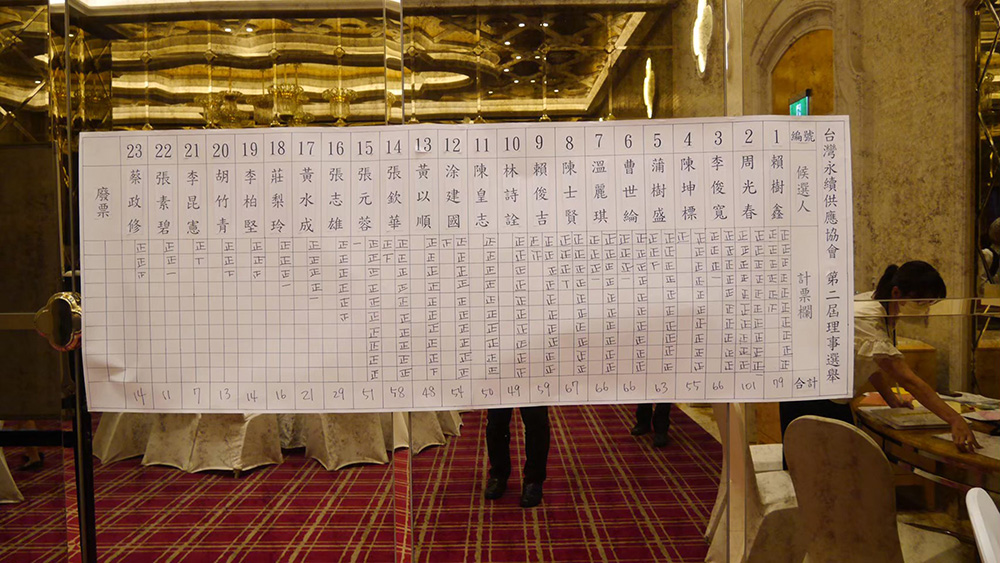 台灣永續供應協會 第二屆理事選舉
編號 候選人 計票欄 合計
1 賴樹鑫 79
2 周光春 101
3 李俊寬 66
4 陳坤標 55
5 蒲樹盛 63
6 曹世綸 66
7 溫麗琪 66
8 陳士賢 67
9 賴俊吉 59
10 林詩詮 49
11 陳皇志 50
12 涂建國 54
13 黃以順 48
14 張欽華 58
15 張元蓉 51
16 張志雄 29
17 黃水成 21
18 莊梨玲 16
19 李柏堅 14
20 胡竹青 13
21 李昆憲 7
22 張素碧 11
23 蔡政修 14
廢票